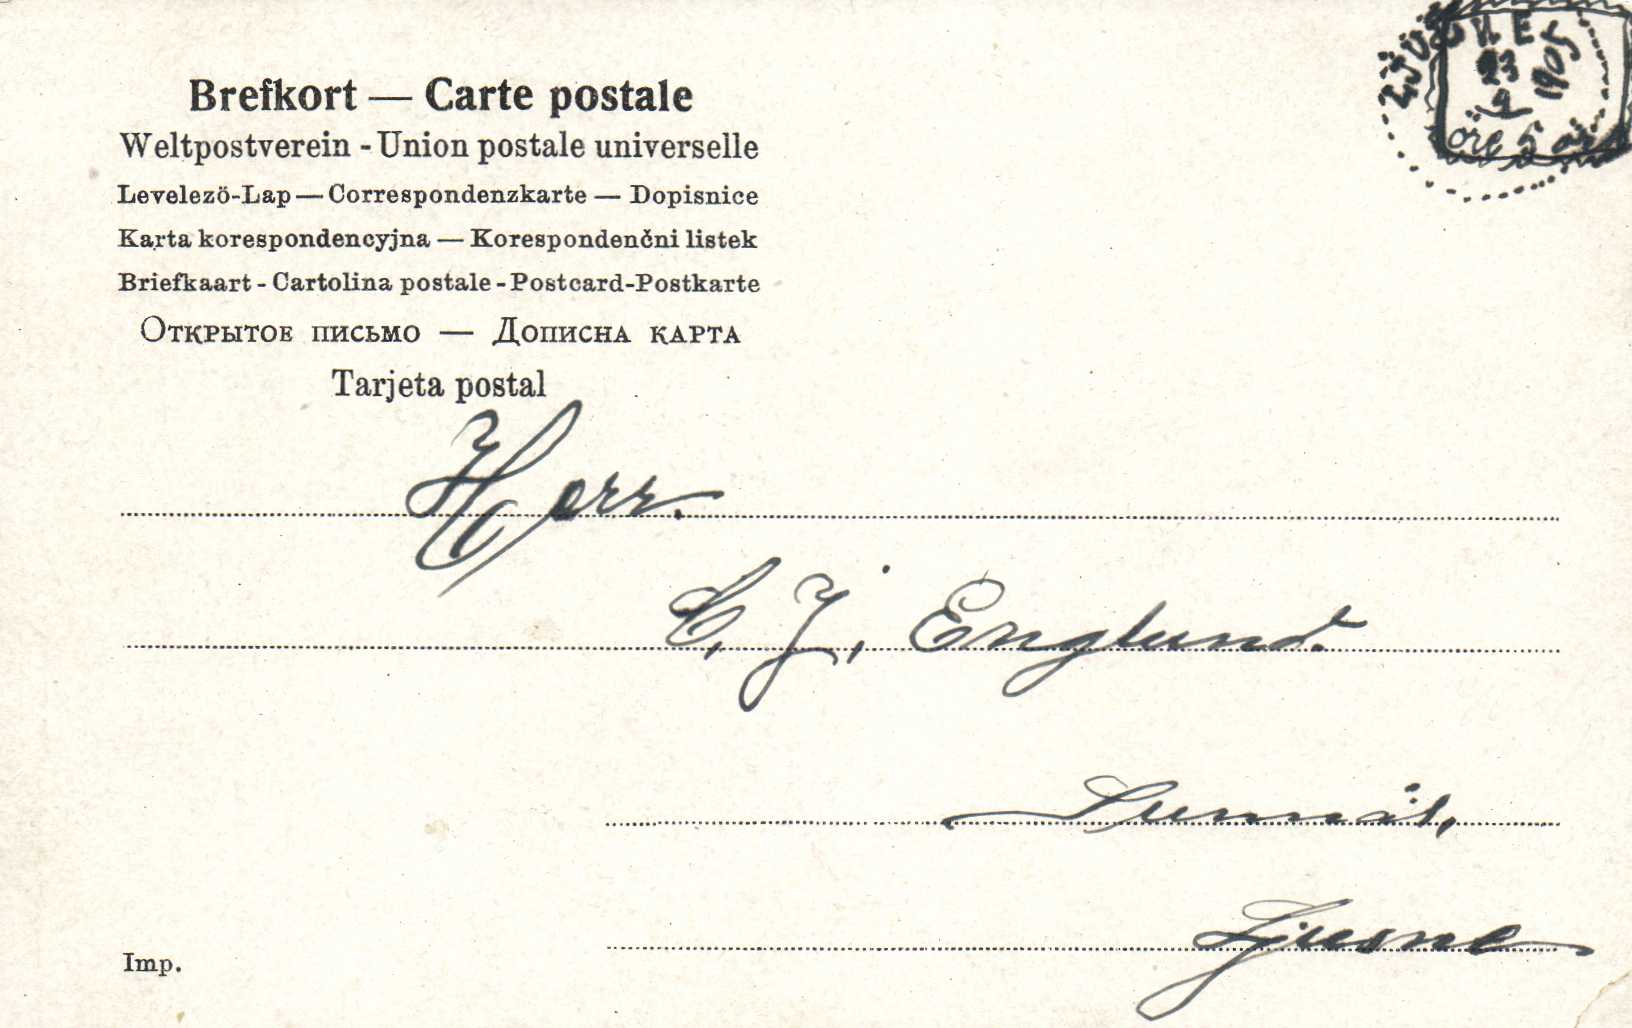 Brefkort — Carte postale
Weltpostverein - Union postale universelle
Levelező-Lap — Correspondenzkarte — Dopisnice
Karta korespondencyjna — Korespondenčni listek
Briefkaart - Cartolina postale - Postcard-Postkarte
Открытое письмо — Дописна карта
Tarjeta postal
LJUSNE
23
2
1905
öre 5 öre
Herr.
C. J. Englund.
Sunnäs,
Ljusne
Imp.